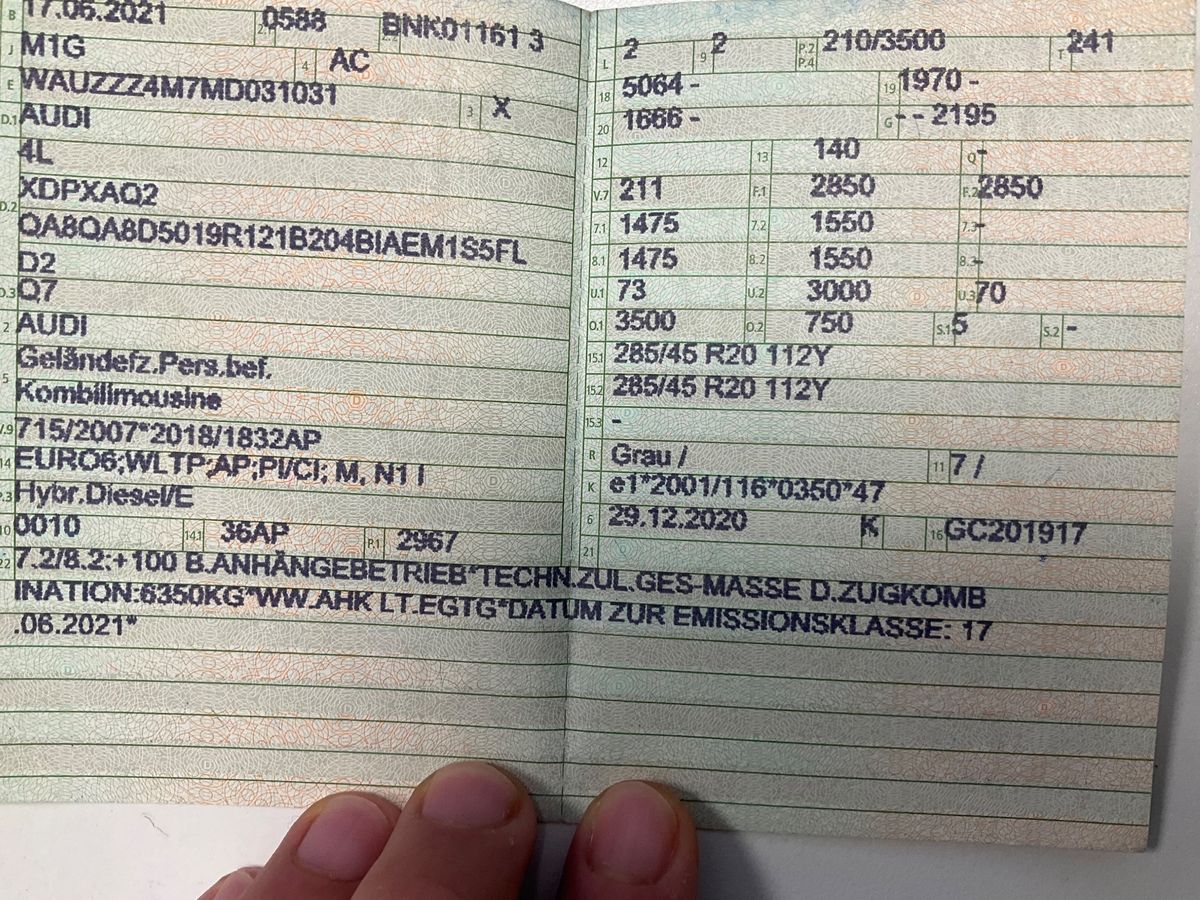 B 17.06.2021 2.1 0588 BNK01161 3
J M1G 4 AC
E WAUZZZ4M7MD031031 3 X
D.1 AUDI
4L
D.2 XDPXAQ2
QA8QA8D5019R121B204BIAEM1S5FL
D2
D.3 Q7
2 AUDI
5 Geländefz.Pers.bef.
Kombilimousine
V.9 715/2007*2018/1832AP
14 EURO6;WLTP;AP;PI/CI; M, N1 I
P.3 Hybr.Diesel/E
10 0010 14.1 36AP P.1 2967
L 2 9 2 P.2 P.4 210/3500 T 241
18 5064 - 19 1970 -
20 1666 - G - - 2195
12 13 140 Q -
V.7 211 F.1 2850 F.2 2850
7.1 1475 7.2 1550 7.3 -
8.1 1475 8.2 1550 8.3 -
U.1 73 U.2 3000 U.3 70
O.1 3500 O.2 750 S.1 5 S.2 -
15.1 285/45 R20 112Y
15.2 285/45 R20 112Y
15.3 -
R Grau / 11 7 /
K e1*2001/116*0350*47
6 29.12.2020 K 16 GC201917
21
22 7.2/8.2:+100 B.ANHÄNGEBETRIEB*TECHN.ZUL.GES-MASSE D.ZUGKOMB
INATION:6350KG*WW.AHK LT.EGTG*DATUM ZUR EMISSIONSKLASSE: 17
.06.2021*